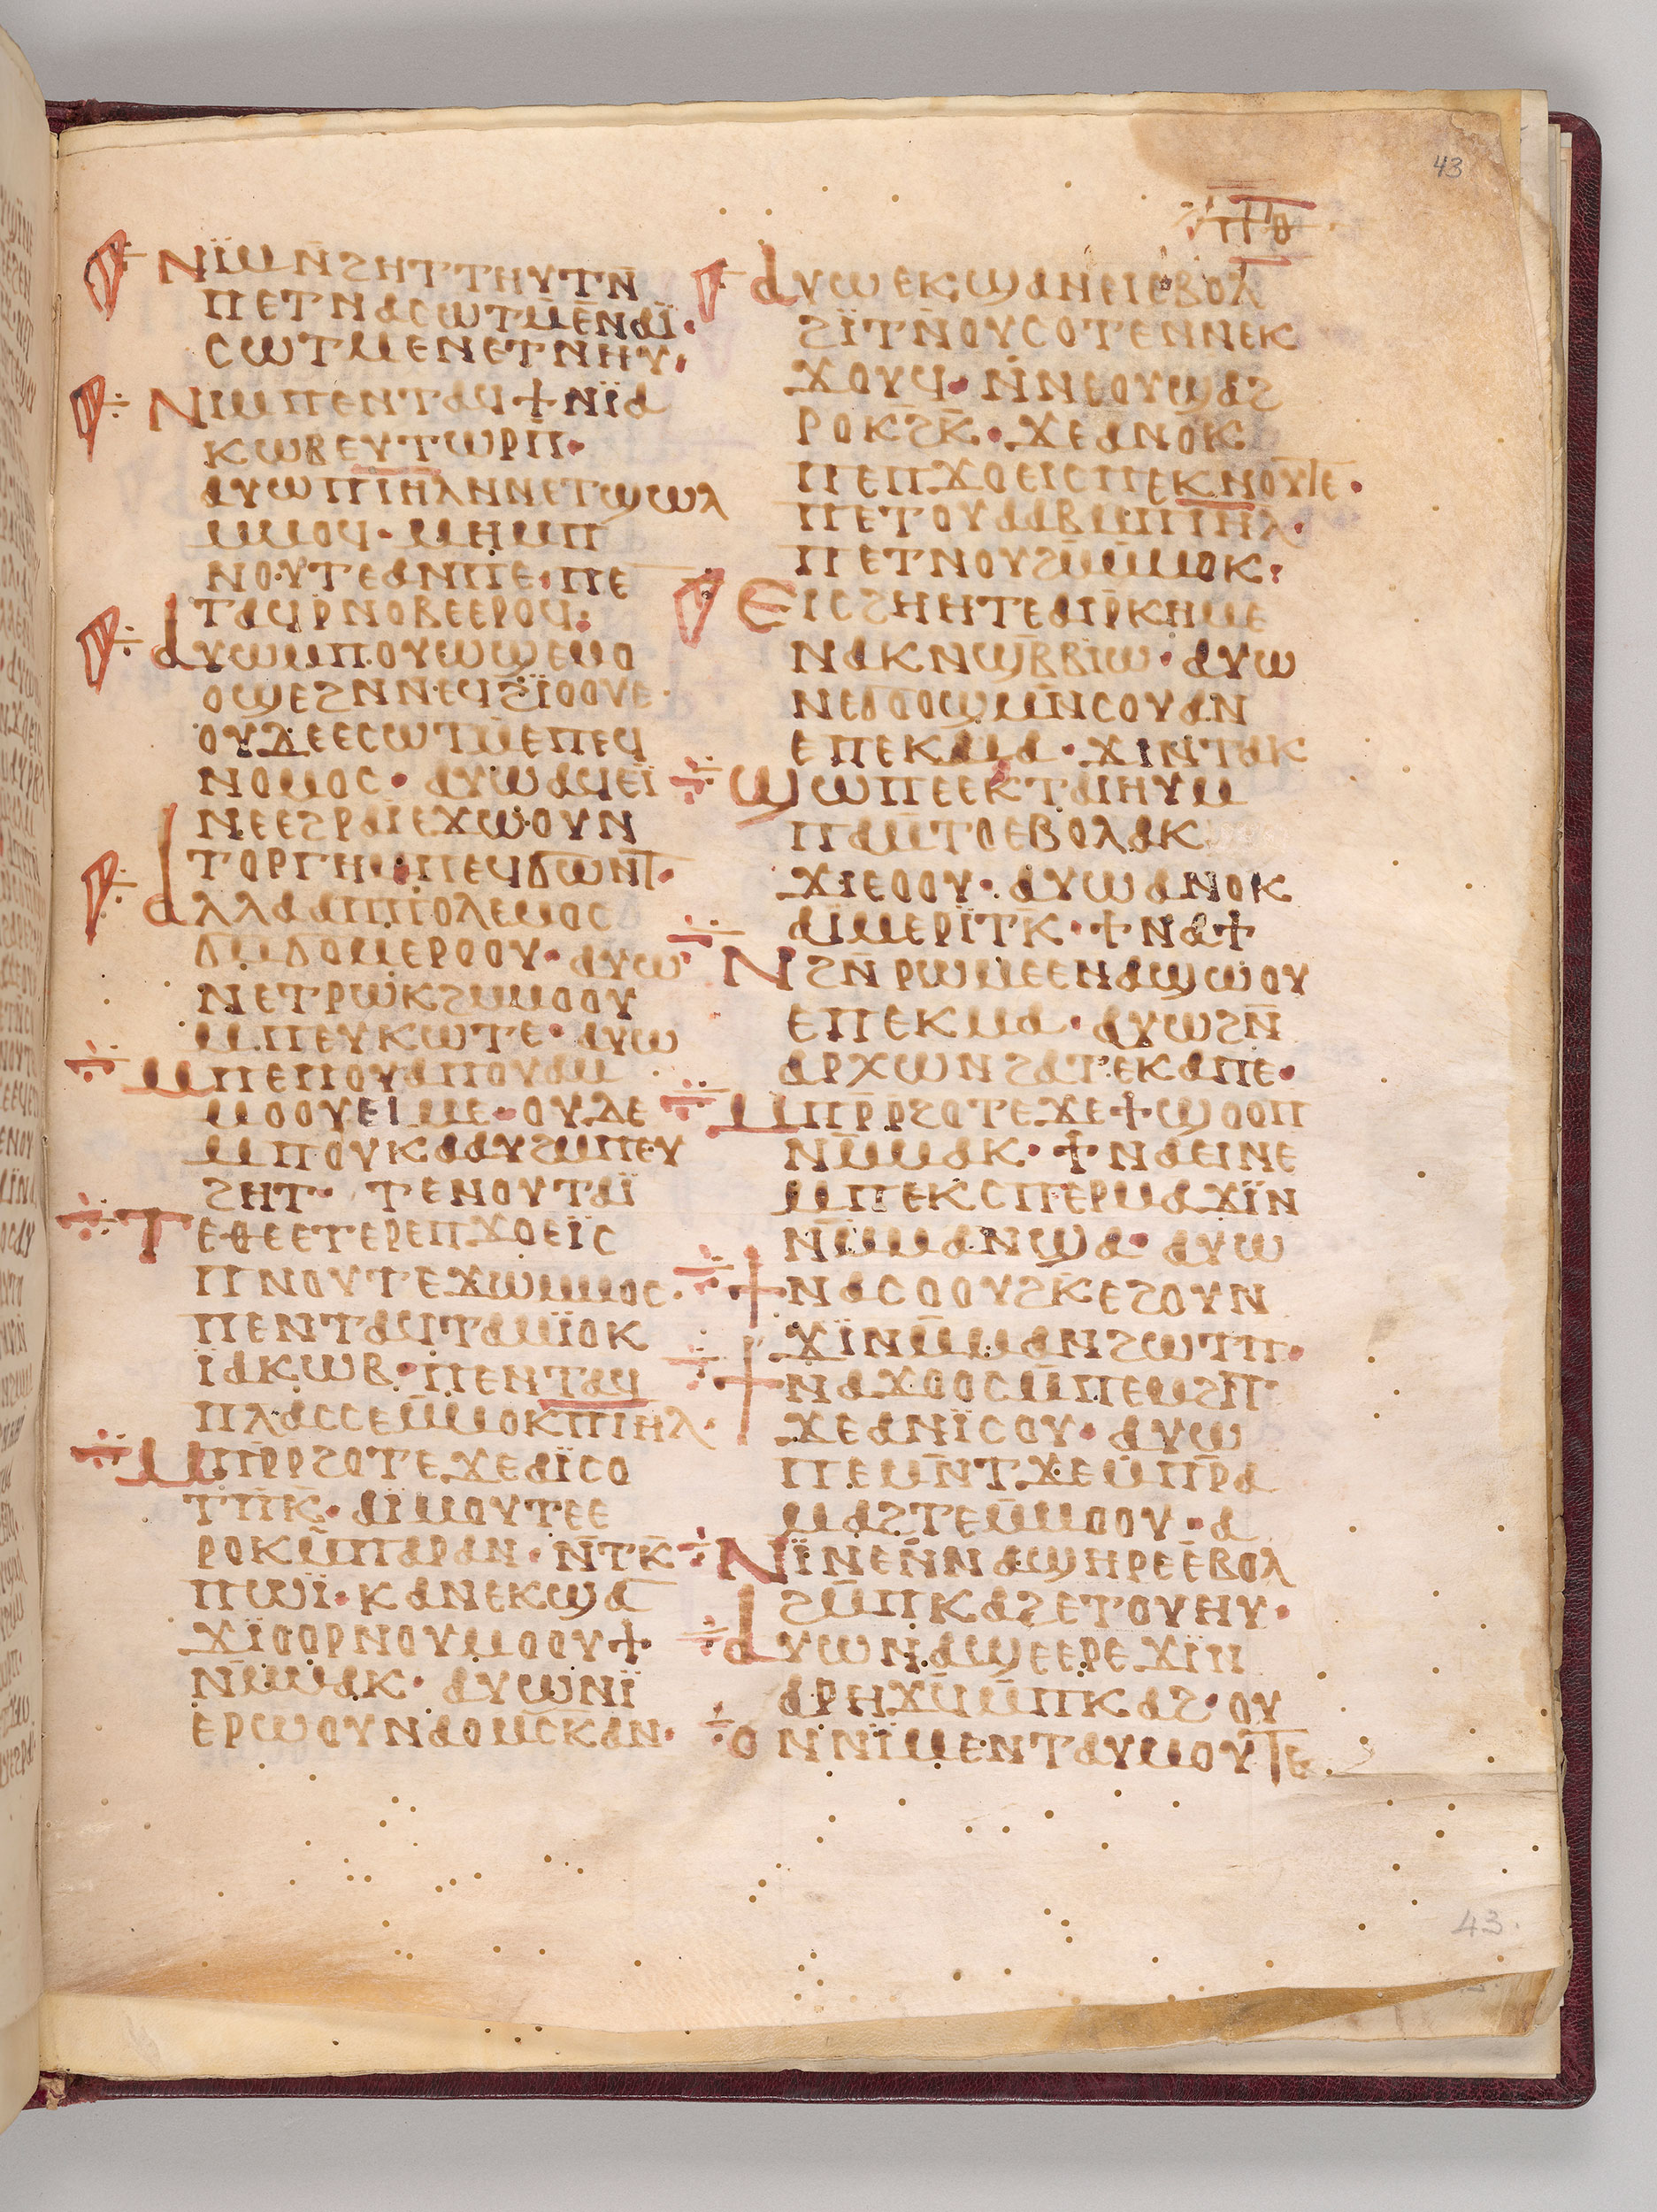 43
ⲡⲑ
ⲛⲓ̈ⲙⲛ̄ϩⲏⲧⲧⲏⲩⲧⲛ̄
ⲡⲉⲧⲛⲁⲥⲱⲧⲙ̄ⲉⲛⲁⲓ̈·
ⲥⲱⲧⲙⲉⲛⲉⲧⲛⲏⲩ·
ⲛⲓⲙⲡⲉⲛⲧⲁϥϯⲛⲓ̈ⲁ
ⲕⲱⲃⲉⲩⲧⲱⲣⲡ̄·
ⲁⲩⲱⲡⲓ̄ⲏ̄ⲗⲛⲛⲉⲧϣⲱⲗ
ⲙⲙⲟϥ· ⲙⲏⲙⲡ
ⲛⲟⲩⲧⲉⲁⲛⲡⲉ·ⲡⲉ
ⲧⲁϥⲣⲛⲟⲃⲉⲉⲣⲟϥ:
ⲁⲩⲱⲙⲡⲟⲩⲱϣⲉⲙⲟ
ⲟϣⲉϩⲛⲛⲉϥϩⲓ̈ⲟⲟⲩⲉ·
ⲟⲩⲇⲉⲉⲥⲱⲧⲙ̄ⲉⲡⲉϥ
ⲛⲟⲙⲟⲥ· ⲁⲩⲱⲁϥⲉⲓ̈
ⲛⲉⲉϩⲣⲁⲓ̈ⲉϫⲱⲟⲩⲛ
ⲧⲟⲣⲅⲏⲙⲡⲉϥϭⲱⲛⲧ·
ⲁⲗⲗⲁⲁⲡⲡⲟⲗⲉⲙⲟⲥ
ϭⲙϭⲟⲙⲉⲣⲟⲟⲩ· ⲁⲩⲱ
ⲛⲉⲧⲣⲱⲕϩⲙⲙⲟⲟⲩ
ⲙⲡⲉⲩⲕⲱⲧⲉ· ⲁⲩⲱ
ⲙⲡⲉⲡⲟⲩⲁⲡⲟⲩⲁⲙ
ⲙⲟⲟⲩⲉⲓⲙⲉ· ⲟⲩⲇⲉ
ⲙⲡⲟⲩⲕⲁⲁⲩϩⲙⲡⲉⲩ
ϩⲏⲧ· ⲧⲉⲛⲟⲩⲧⲁⲓ̈
ⲧⲉⲑⲉⲉⲧⲉⲣⲉⲡϫⲟⲉⲓ̈ⲥ
ⲡⲛⲟⲩⲧⲉϫⲱⲙⲙⲟⲥ·
ⲡⲉⲛⲧⲁϥⲧⲁⲙⲓ̈ⲟⲕ
ⲓ̈ⲁⲕⲱⲃ·ⲡⲉⲛⲧⲁϥ
ⲡⲗⲁⲥⲥⲉⲙ̄ⲙⲟⲕⲡⲓ̄ⲏ̄ⲗ·
ⲙⲡⲣ̄ⲣϩⲟⲧⲉϫⲉⲁⲓ̈ⲥⲟ
ⲧⲡ̄ⲕ̄· ⲁⲓ̈ⲙⲟⲩⲧⲉⲉ
ⲣⲟⲕⲙ̄ⲡⲁⲣⲁⲛ· ⲛ̄ⲧⲕ̄
ⲡⲱⲓ̈·ⲕⲁⲛⲉⲕϣⲁ
ϫⲓ̈ⲟⲟⲣⲛⲟⲩⲙⲟⲟⲩϯ
ⲛ̄ⲙⲙⲁⲕ· ⲁⲩⲱⲛⲓ̈
ⲉⲣⲱⲟⲩⲛⲁⲟⲙⲥ̄ⲕⲁⲛ·
ⲁⲩⲱⲉⲕϣⲁⲛⲉⲓⲉⲃⲟⲗ
ϩⲓ̈ⲧⲛ̄ⲟⲩⲥⲟⲧⲉⲛⲛⲉⲕ
ϫⲟⲩϥ· ⲛ̄ⲛⲉⲟⲩϣⲁϩ
ⲣⲟⲕϩⲕ̄·ϫⲉⲁⲛⲟⲕ
ⲡⲉⲡϫⲟⲉⲓⲥⲡⲉⲕⲛⲟⲩⲧⲉ·
ⲡⲉⲧⲟⲩⲁⲁⲃⲙ̄ⲡⲓ̄ⲏ̄ⲗ·
ⲡⲉⲧⲛⲟⲩϩⲙ̄ⲙ̄ⲙⲟⲕ:
ⲉⲓⲥϩⲏⲏⲧⲉⲁⲓⲣ̄ⲕⲏⲙⲉ
ⲛⲁⲕⲛϣⲃ̄ⲃⲓⲱ· ⲁⲩⲱ
ⲛⲉϭⲟⲟϣⲙⲛ̄ⲥⲟⲩⲁⲛ
ⲉⲡⲉⲕⲙⲁ· ϫⲓⲛⲧⲁⲕ
ϣⲱⲡⲉⲉⲕⲧⲁⲓⲏⲩⲙ
ⲡⲁⲙ̄ⲧⲟⲉⲃⲟⲗⲁⲕ
ϫⲓⲉⲟⲟⲩ· ⲁⲩⲱⲁⲛⲟⲕ
ⲁⲓ̈ⲙⲉⲣⲓ̈ⲧⲕ· ϯⲛⲁϯ
ⲛϩⲛ̄ⲣⲱⲙⲉⲉⲛⲁϣⲱⲟⲩ
ⲉⲡⲉⲕⲙⲁ· ⲁⲩⲱϩⲛ̄
ⲁⲣⲭⲱⲛϩⲁⲧⲉⲕⲁⲡⲉ·
ⲙⲡⲣ̄ⲣ̄ϩⲟⲧⲉϫⲉϯϣⲟⲟⲡ
ⲛⲙ̄ⲙⲁⲕ· ϯⲛⲁⲉⲓⲛⲉ
ⲙⲡⲉⲕⲥⲡⲉⲣⲙⲁϫⲓ̈ⲛ
ⲛⲙ̄ⲙⲁⲛϣⲁ· ⲁⲩⲱ
ϯⲛⲁⲥⲟⲟⲩϩⲕ̄ⲉϩⲟⲩⲛ
ϫⲓ̈ⲛⲙ̄ⲙⲁⲛϩⲱⲧⲡ·
ϯⲛⲁϫⲟⲟⲥⲙ̄ⲡⲉⲙϩⲓ̄ⲧ
ϫⲉⲁⲛⲓ̈ⲥⲟⲩ· ⲁⲩⲱ
ⲡⲉⲙⲛ̄ⲧϫⲉⲙ̄ⲡⲣ̄ⲁ
ⲙⲁϩⲧⲉⲙ̄ⲙⲟⲟⲩ·ⲁ
ⲛⲓ̈ⲛⲉⲛ̄ⲛⲁϣⲏⲣⲉⲉⲃⲟⲗ
ϩⲙ̄ⲡⲕⲁϩⲉⲧⲟⲩⲏⲩ·
ⲁⲩⲱⲛⲁϣⲉⲉⲣⲉϫⲓ̈ⲛ
ⲁⲣⲏϫϥ̄ⲙ̄ⲡⲕⲁϩ·ⲟⲩ
ⲟⲛⲛⲓ̈ⲙⲉⲛⲧⲁⲩⲙⲟⲩⲧⲉ
43.